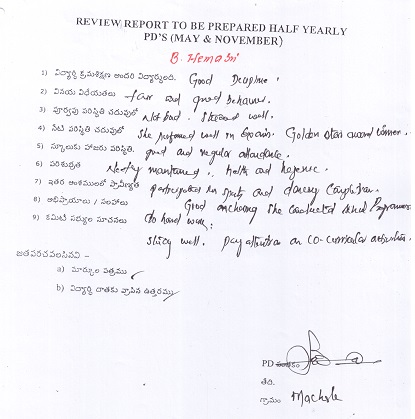 REVIEW REPORT TO BE PREPARED HALF YEARLY
PD'S (MAY & NOVEMBER)
B. Hemasri
1) విద్యార్థి క్రమశిక్షణ అందరి విద్యార్థులది. Good Decipline.
2) వినయ విధేయతలు fair and good behaviour.
3) పూర్వపు పరిస్థితి చదువులో Not bad. Studied well.
4) నేటి పరిస్థితి చదువులో She performed well in Exain. Golden star award winner.
5) స్కూలుకు హాజరు పరిస్థితి. good and regular attendence.
6) పరిశుభ్రత Neatly mantained, helth and hegenic.
7) ఇతర అంశములలో ప్రావీణ్యత participated in sports and dancing
8) అభిప్రాయాలు / సలహాలు Good anchoring she conducted school Programmes
9) కమిటి సభ్యుల సూచనలు do hard work:
study well. pay attention on co-curricular activities.
జతపరచవలసినవి –
a) మార్కుల పత్రము
b) విద్యార్థి దాతకు వ్రాసిన ఉత్తరము
PD
తేది.
గ్రామం Macherla